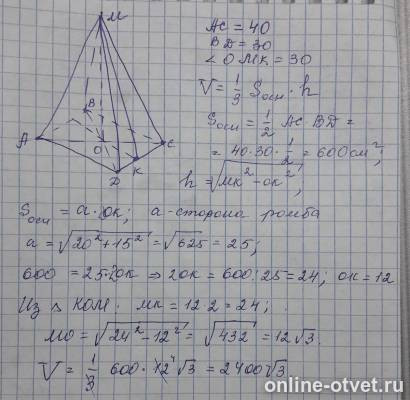 M
B
A
O
C
K
D
AC = 40
BD = 30
∠OMK = 30
V = 1/3 Sосн · h
Sосн = 1/2 AC BD =
= 40·30·1/2 = 600 см²;
h = √(MK² - OK²);
Sосн = a · OK; a - сторона ромба
a = √(20² + 15²) = √625 = 25;
600 = 25·2OK ⇒ 2OK = 600:25 = 24; OK = 12
Из △ KOM. MK = 12·2 = 24;
MO = √(24² - 12²) = √432 = 12√3.
V = 1/3 600·12⁴√3 = 2400√3.
online-otvet.ru